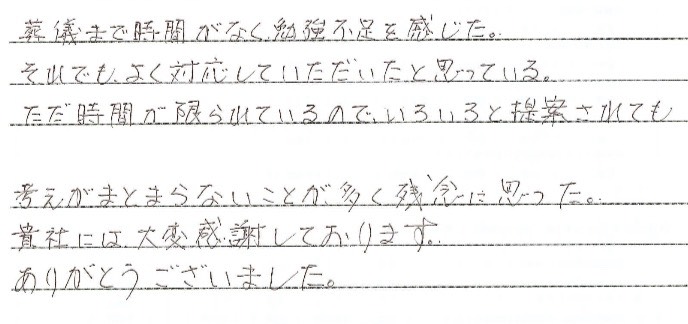 葬儀まで時間がなく、勉強不足を感じた。
それでも、よく対応していただいたと思っている。
ただ時間が限られているので、いろいろと提案されても
考えがまとまらないことが多く残念に思った。
貴社には大変感謝しております。
ありがとうございました。